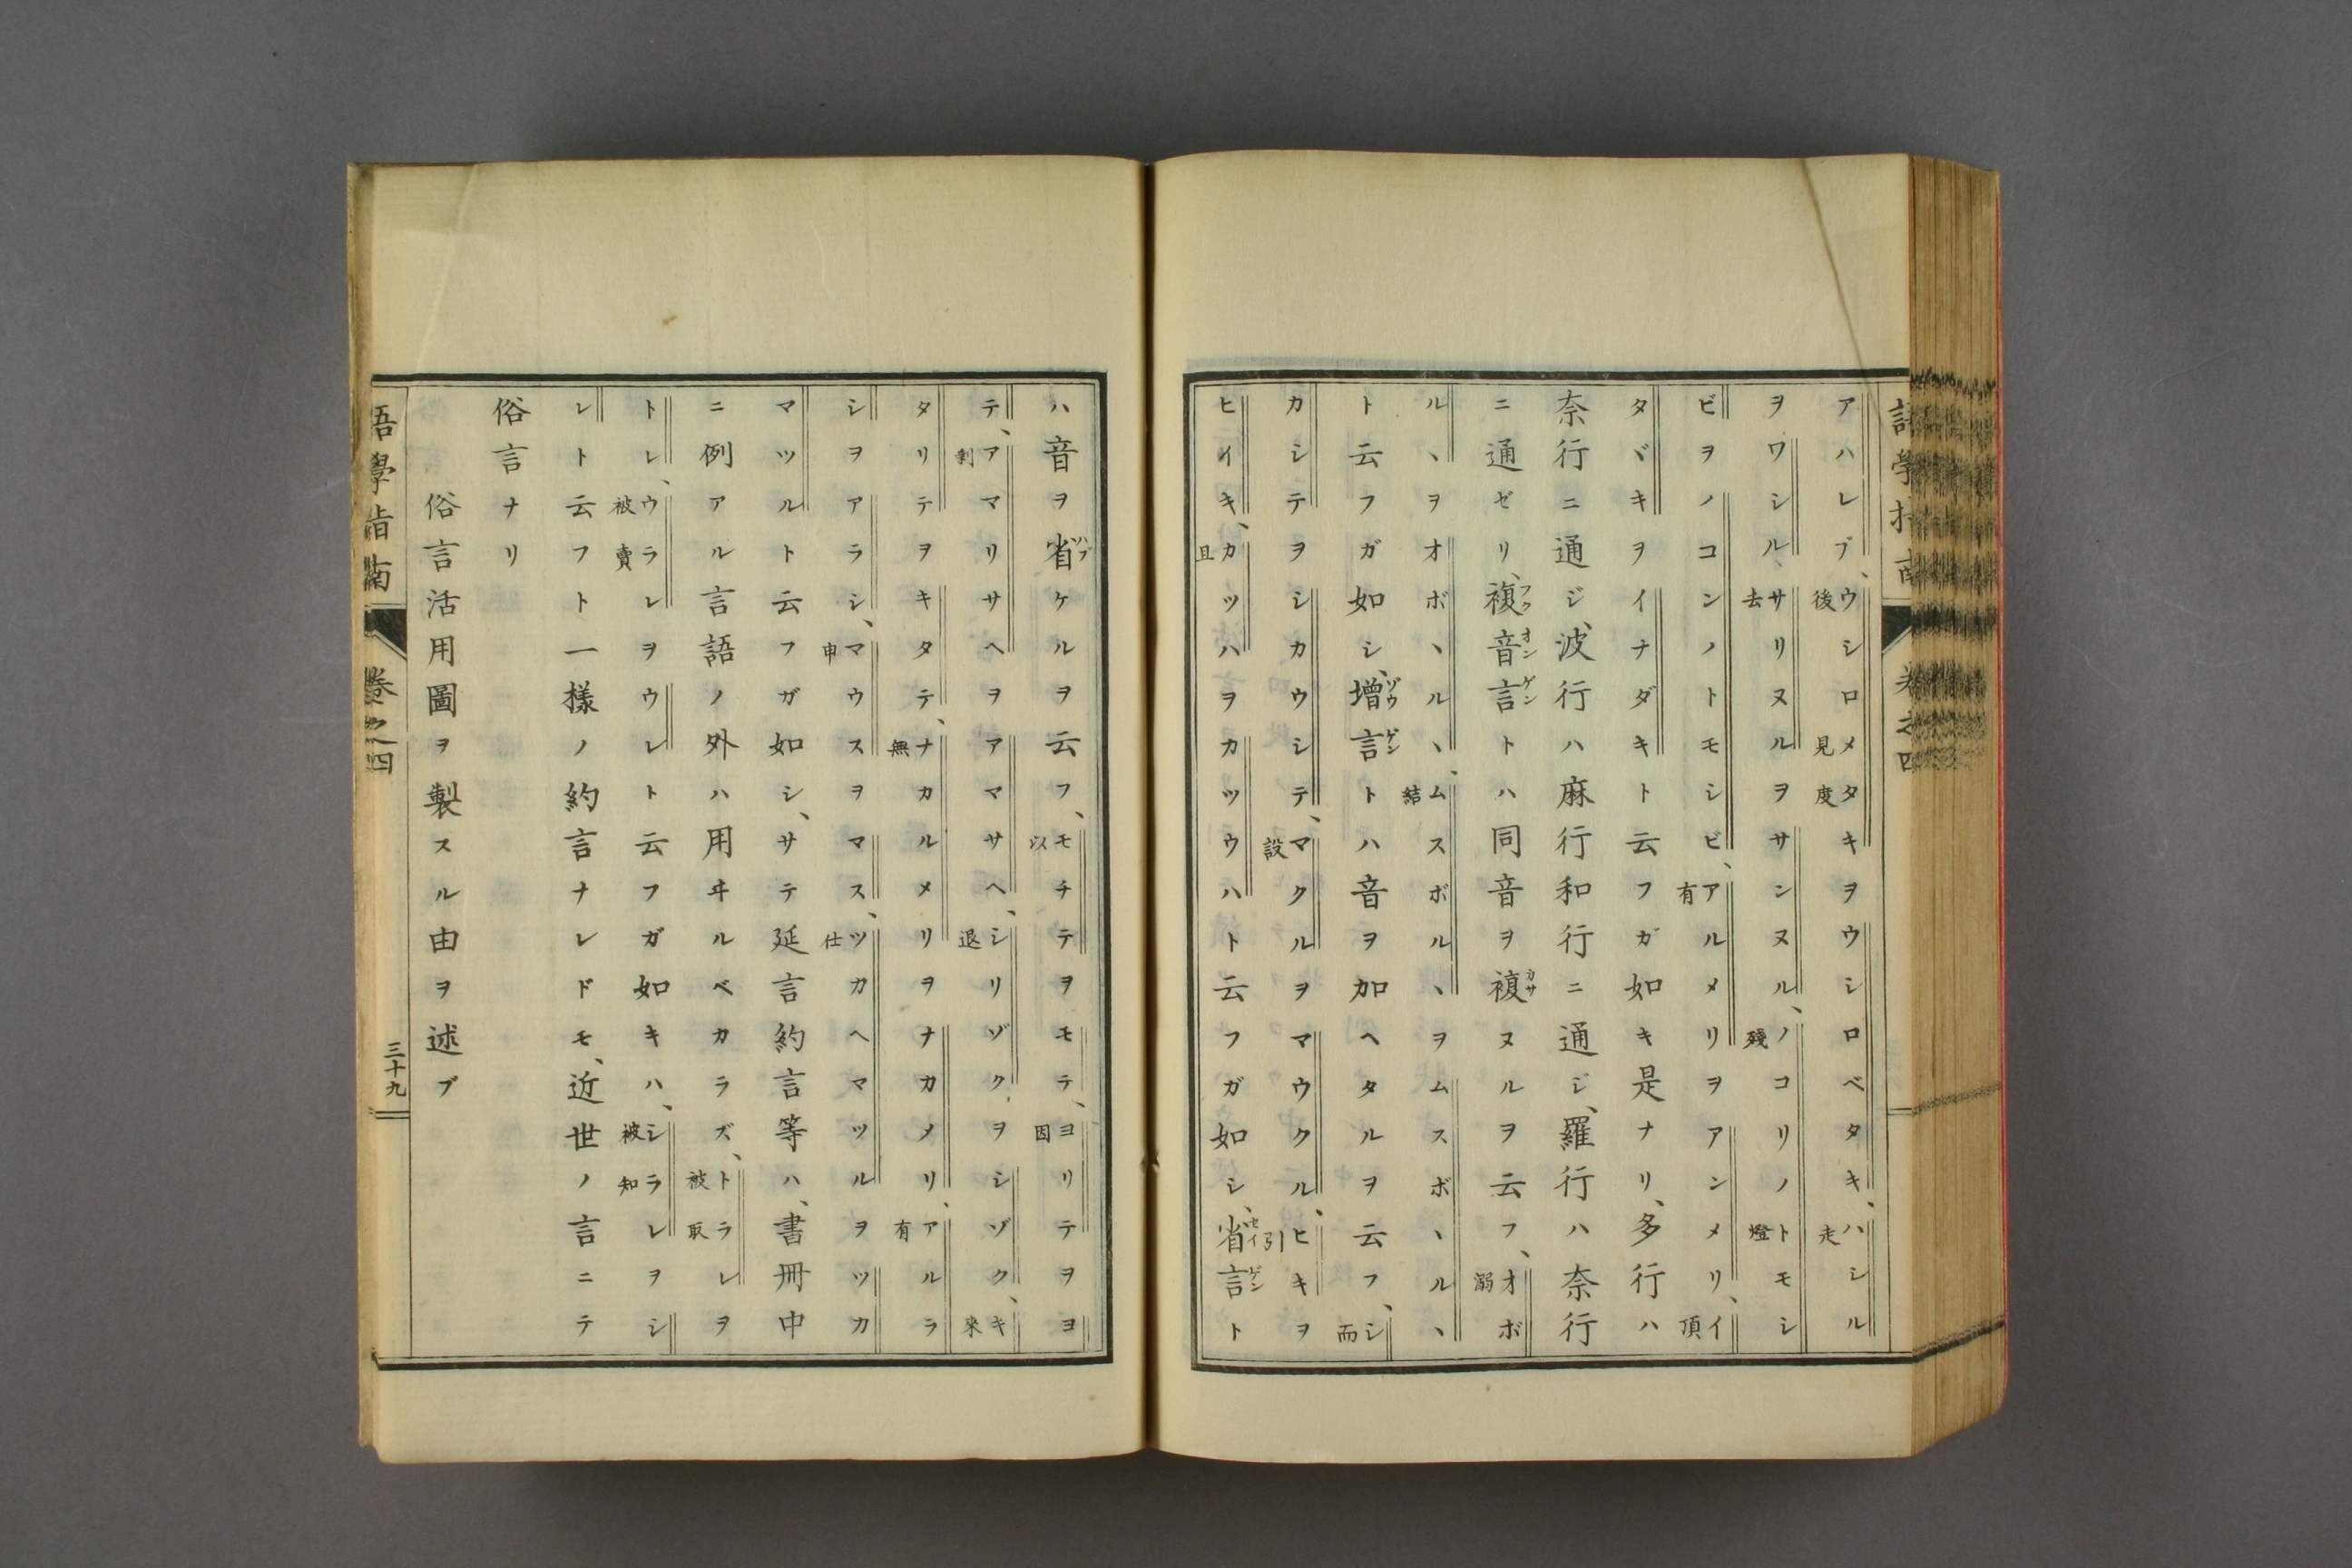 語學指南
卷之四
アハレブ、ウシロメタキヲウシロベタキ、ハシル
後見度走
ヲワシル、サリヌルヲサンヌル、ノコリノトモシ
去殘燈
ビヲノコンノトモシビ、アルメリヲアンメリ、イ
有頂
タヾキヲイナダキト云フガ如キ是ナリ、多行ハ
奈行ニ通ジ、波行ハ麻行和行ニ通ジ、羅行ハ奈行
ニ通ゼリ、複音言トハ同音ヲ複ヌルヲ云フ、オボ
フクオンゲンカサ溺
ルヽヲオボヽルヽ、ムスボルヽヲムスボヽルヽ
結
ト云フガ如シ、增言トハ音ヲ加ヘタルヲ云フ、シ
ゾウゲン而
カシテヲシカウシテ、マクルヲマウクル、ヒキヲ
設引
ヒイキ、カツハヲカツウハト云フガ如シ、省言ト
且セイゲン
ハ音ヲ省ケルヲ云フ、モチテヲモテ、ヨリテヲヨ
ハブ以因
テ、アマリサヘヲアマサヘ、シリゾクヲシゾク、キ
剩退來
タリテヲキタテ、ナカルメリヲナカメリ、アルラ
無有
シヲアラシ、マウスヲマス、ツカヘマツルヲツカ
申仕
マツルト云フガ如シ、サテ延言約言等ハ、書冊中
ニ例アル言語ノ外ハ用ヰルベカラズ、トラレヲ
被取
トレ、ウラレヲウレト云フガ如キハ、シラレヲシ
被賣被知
レト云フト一樣ノ約言ナレドモ、近世ノ言ニテ
俗言ナリ
俗言活用圖ヲ製スル由ヲ述ブ
語學指南
卷之四
三十九